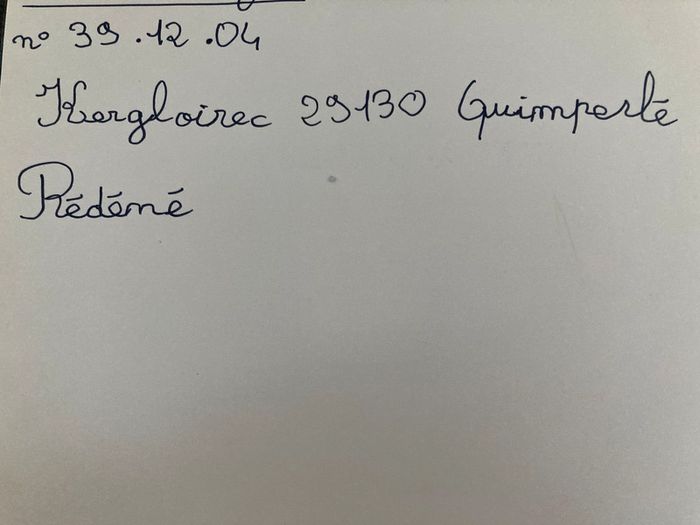 n° 39.12.04
Kergloirec 29130 Quimperlé
Rédéné